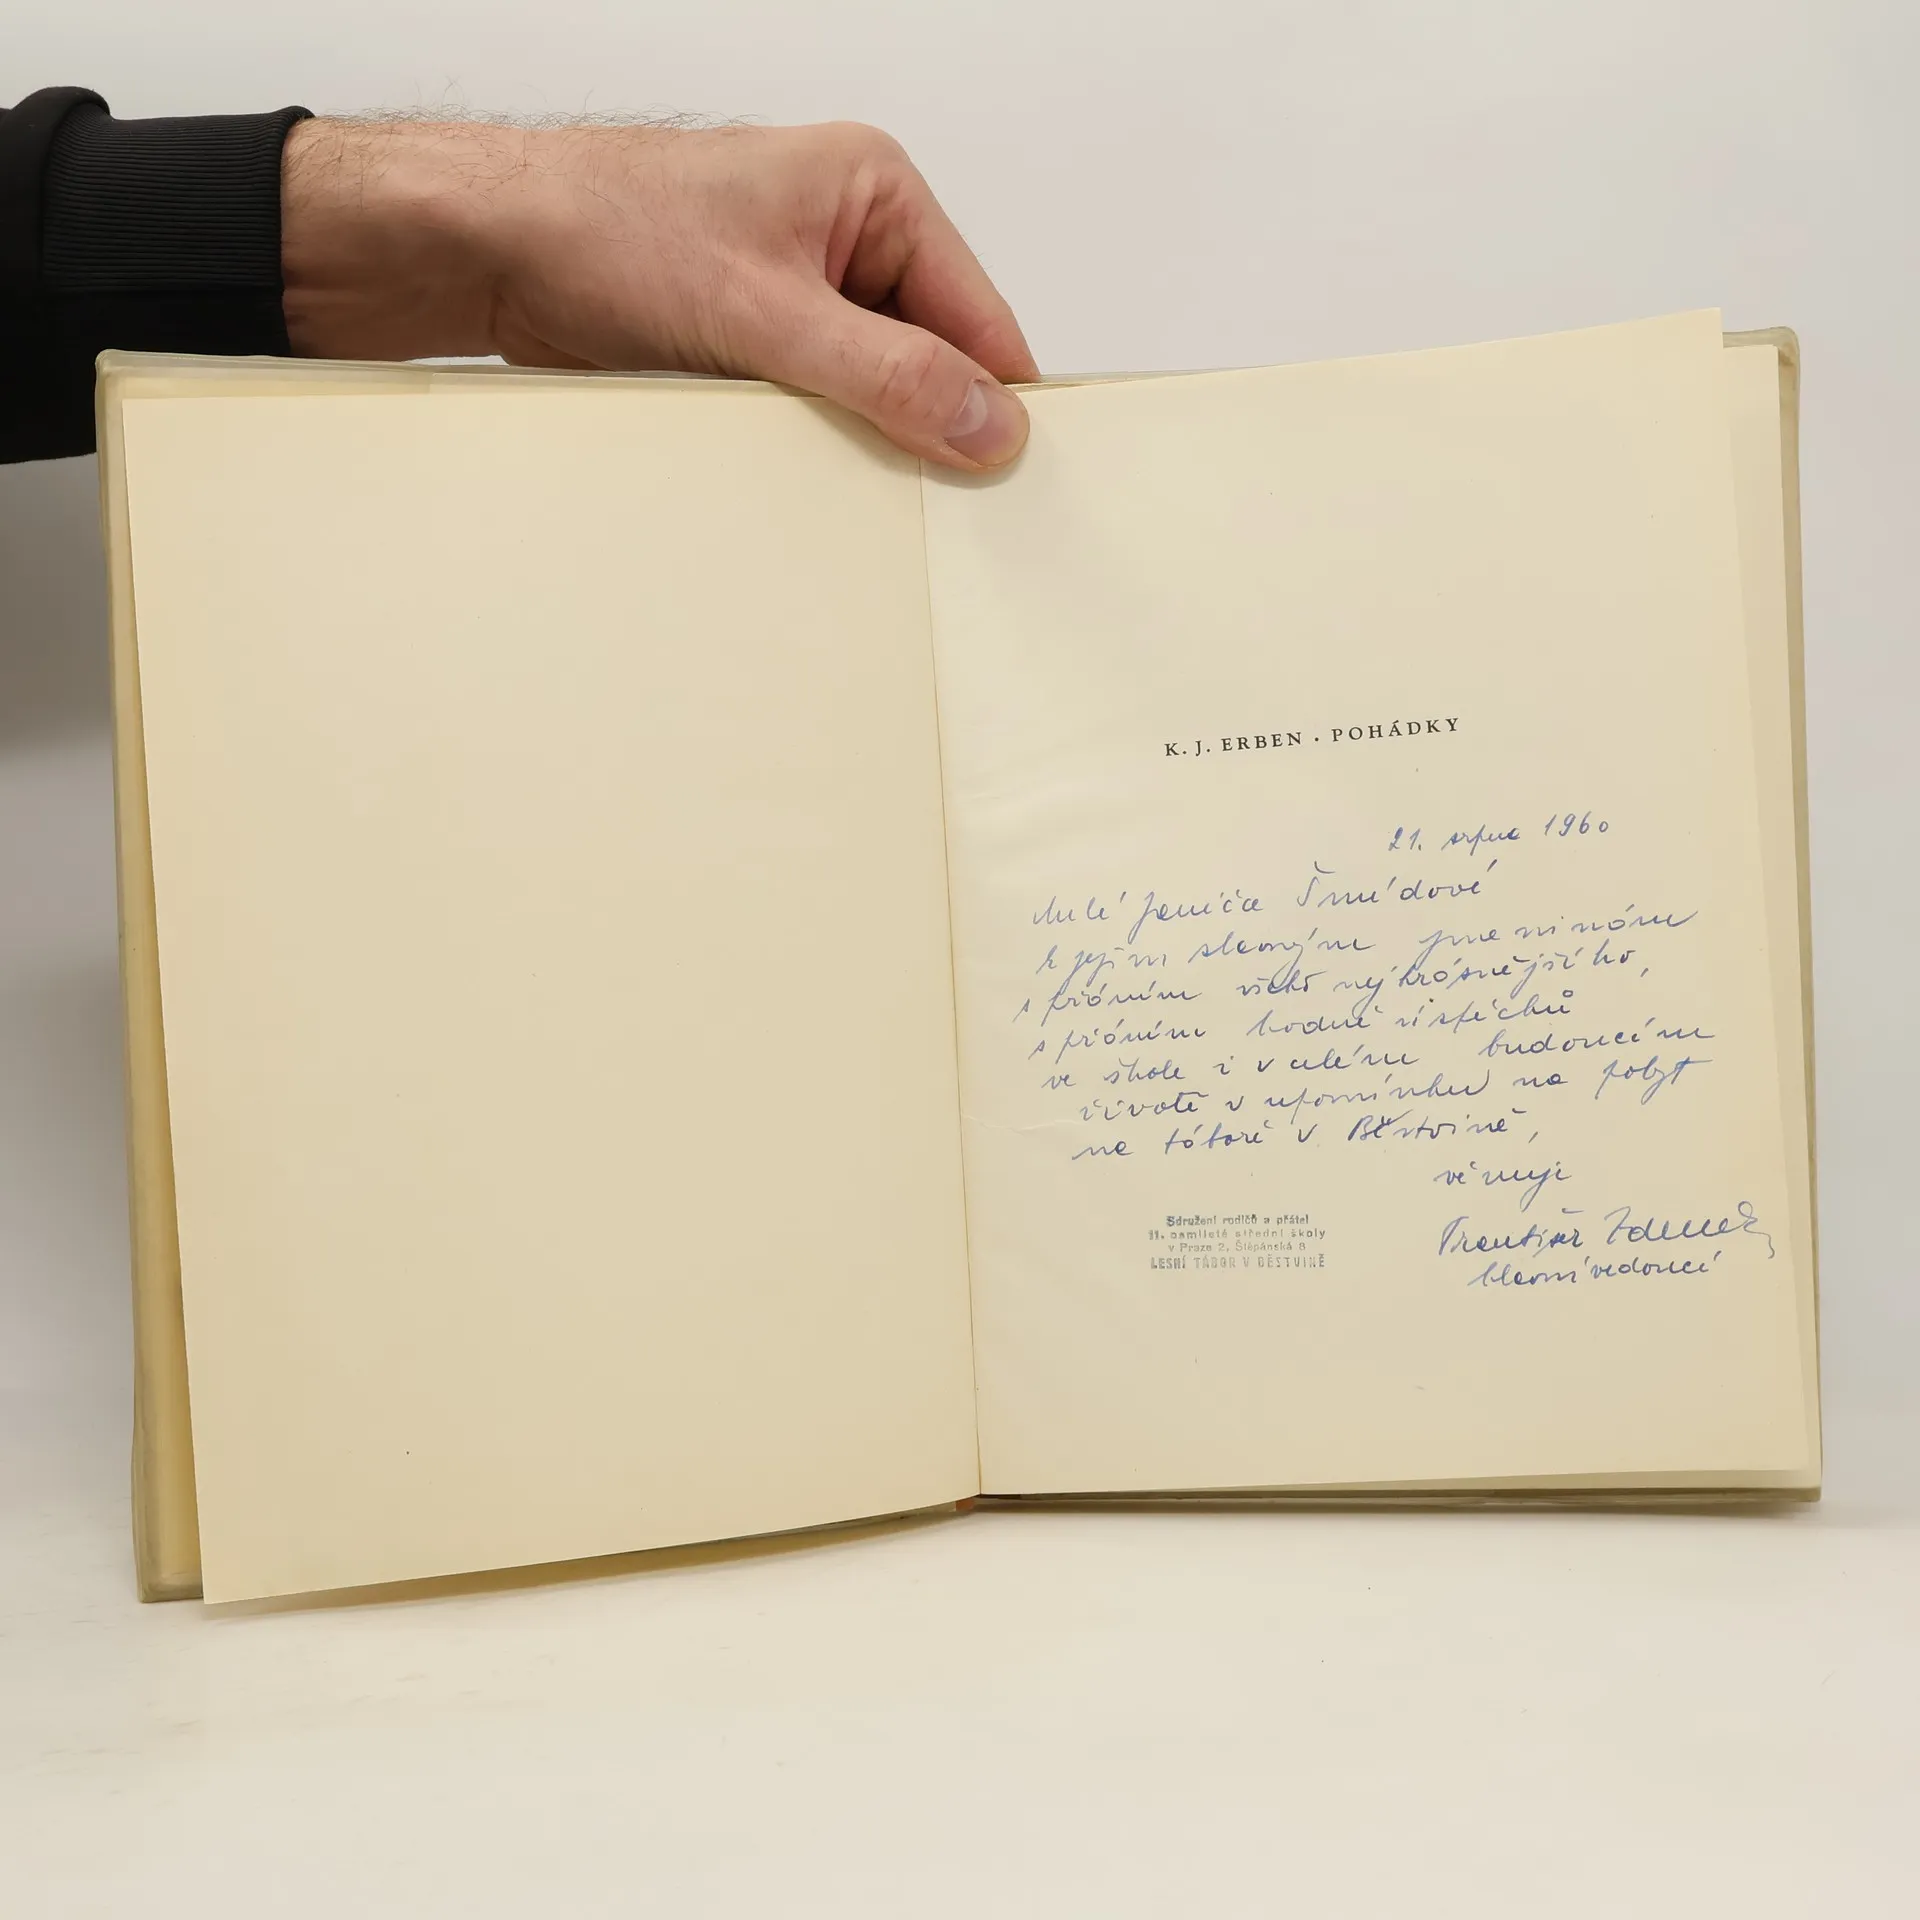 K. J. ERBEN · POHÁDKY
21. srpna 1960
Milé Jeničce Šmídové
k jejím slavným jmeninám
s přáním všeho nejkrásnějšího,
s přáním hodně úspěchů
ve škole i v celém budoucím
životě v upomínku na pobyt
na táboře v Běstvině,
věnuje
František Zdeněk
hlavní vedoucí
Sdružení rodičů a přátel
11. osmileté střední školy
v Praze 2, Štěpánská 8
LESNÍ TÁBOR V BĚSTVINĚ